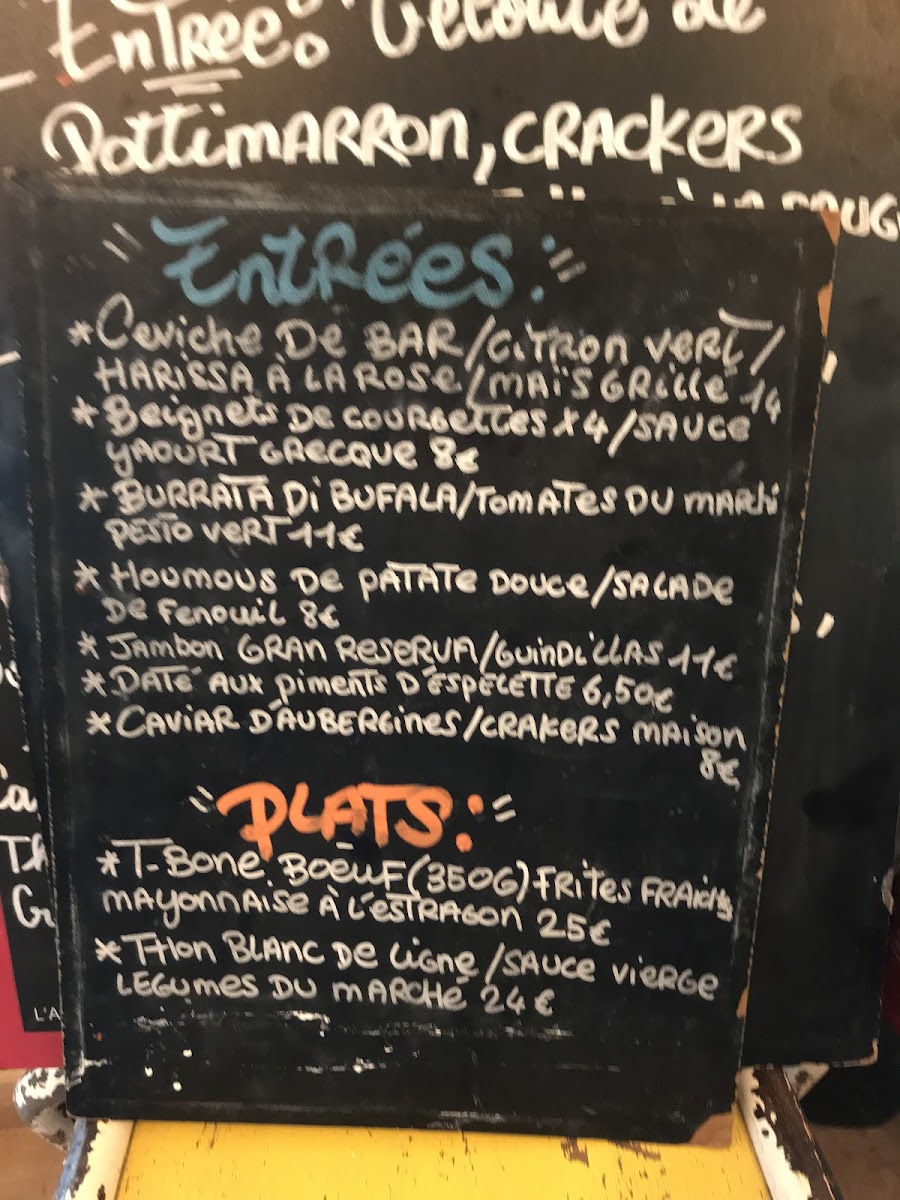 Entrée: Velouté de
Pottimarron, crackers
Entrées:
*Ceviche De BAR/Citron vert/
HARISSA À LA ROSE/MAÏS GRILLÉ 14
*Beignets De courgettes x4/SAUCE
YAOURT GRECQUE 8€
*BURRATA Di BUFALA/TOMATES DU MARCHé
PESTO VERT 11€
*Houmous De PATATE Douce/SALADE
De Fenouil 8€
*Jambon GRAN RESERVA/GUINDILLAS 11€
*DATÉ AUX piments D'ESPELETTE 6,50€
*CAVIAR D'AUBERGINES/CRAKERS MAISON
8€
PLATS:
*T-Bone BOEUF(350G) FRITES FRAICHES
MAYONNAISE À L'ESTRAGON 25€
*THON BLANC DE Ligne/SAUCE VIERGE
LEGUMES DU MARCHÉ 24€
L'A